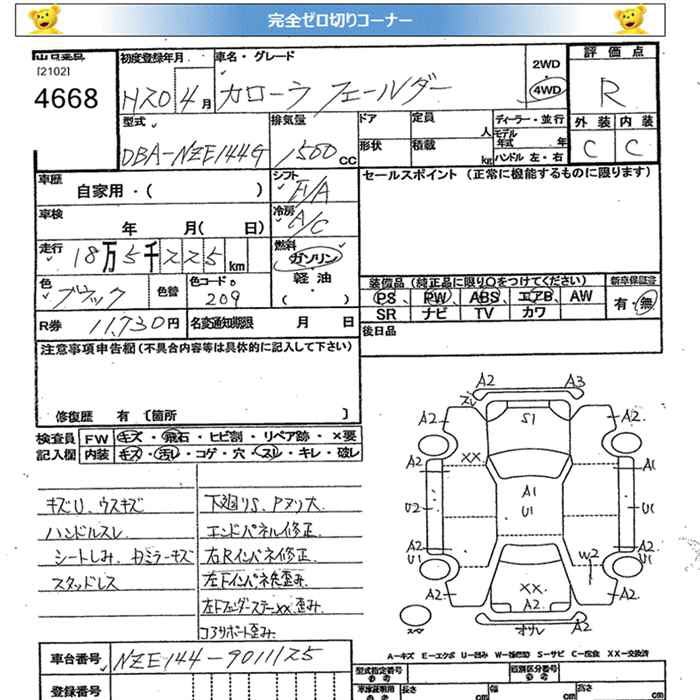 完全ゼロ切りコーナー
[2102]
4668
初度登録年月
H20 4月
車名・グレード
カローラ フィールダー
2WD
4WD
評価点
R
外装 内装
C C
型式
DBA-NZE144G
排気量
1500 CC
ドア
形状
定員 人
積載 kg
ディーラー・並行
モデル年式 年
ハンドル 左・右
車歴
自家用・( )
シフト
F/A
セールスポイント (正常に機能するものに限ります)
車検
年 月( 日)
冷房
A/C
走行
18万5千225km
燃料
ガソリン
軽油
( )
色
ブラック
色替
色コード
209
装備品 (純正品に限り○をつけてください)
PS、PW、ABS、エアB、AW
SR ナビ TV カワ
新車保証書
有・無
R券 11,730円
名変通知期限 月 日
後日品
注意事項申告欄 (不具合内容等は具体的に記入して下さい)
修復歴 有 〔箇所 〕
検査員記入欄
FW キズ・飛石・ヒビ割・リペア跡・×要
内装 キズ・汚し・コゲ・穴・スレ・キレ・破レ
キズU、ウスキズ
ハンドルスレ
シートしみ、
スタッドレス
下廻りS、
エンドパネル修正
右Rインパネ修正
コアサポート歪み
A2 A3
A2 S1 A2
XX
A2 A1
A1
U2 U1 U1
A2 A2
U1 U1
W2
XX
A2 A2 A2
スペ
A2
A-キズ E-エクボ U-凹み W-補修跡 S-サビ C-腐食 XX-交換済
車台番号
NZE144-9011125
登録番号
型式指定番号
類別区分番号
長さ cm 幅 cm 高さ cm